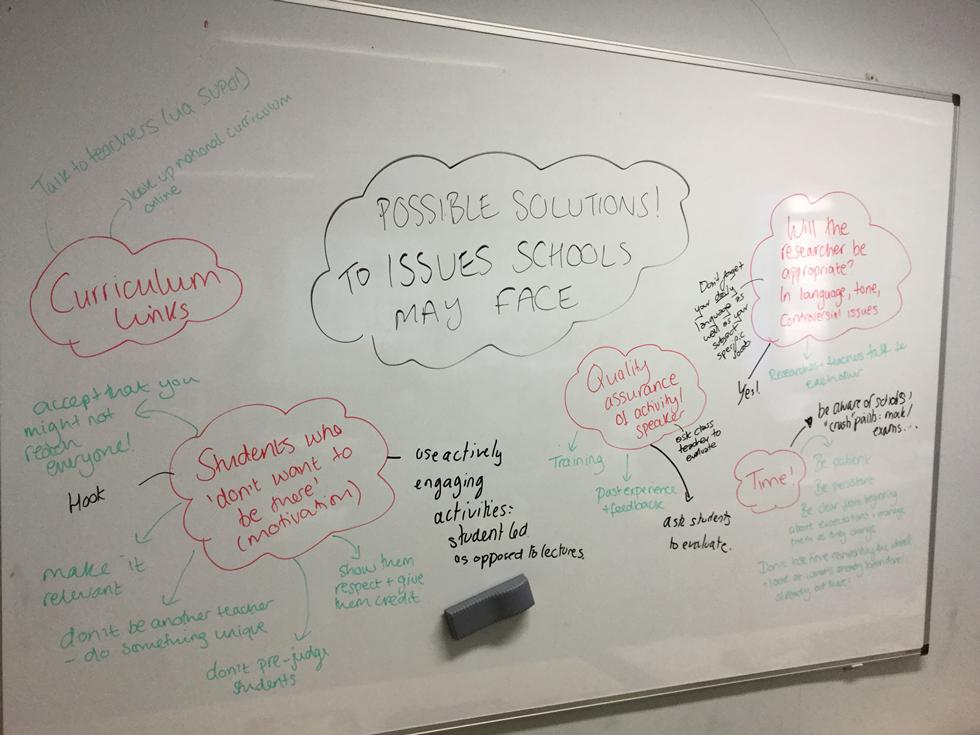 Talk to teachers (via SUPOL)
look up national curriculum
online
Curriculum
links
POSSIBLE SOLUTIONS!
TO ISSUES SCHOOLS
MAY FACE
Will the
researcher be
appropriate?
In language, tone,
controversial issues
Don't forget
your daily
language as
well as your
subject
specific
vocab
Yes!
Researchers + teachers talk to
each other
accept that you
might not
reach
everyone!
Hook
Students who
'don't want to
be there'
(motivation)
make it
relevant
don't be another teacher
- do something unique
don't pre-judge
students
show them
respect + give
them credit
use actively
engaging
activities:
student led
as opposed to lectures.
Quality
assurance
of activity/
speaker
Training
past experience
+ feedback
ask class
teacher to
evaluate
ask students
to evaluate.
Time!
be aware of schools'
'crush' points: mock/
exams...
Be patient
Be persistent
Be clear from beginning
about expectations + manage
them as they change
Don't lose time reinventing the wheel
- look at what's already
already out there!